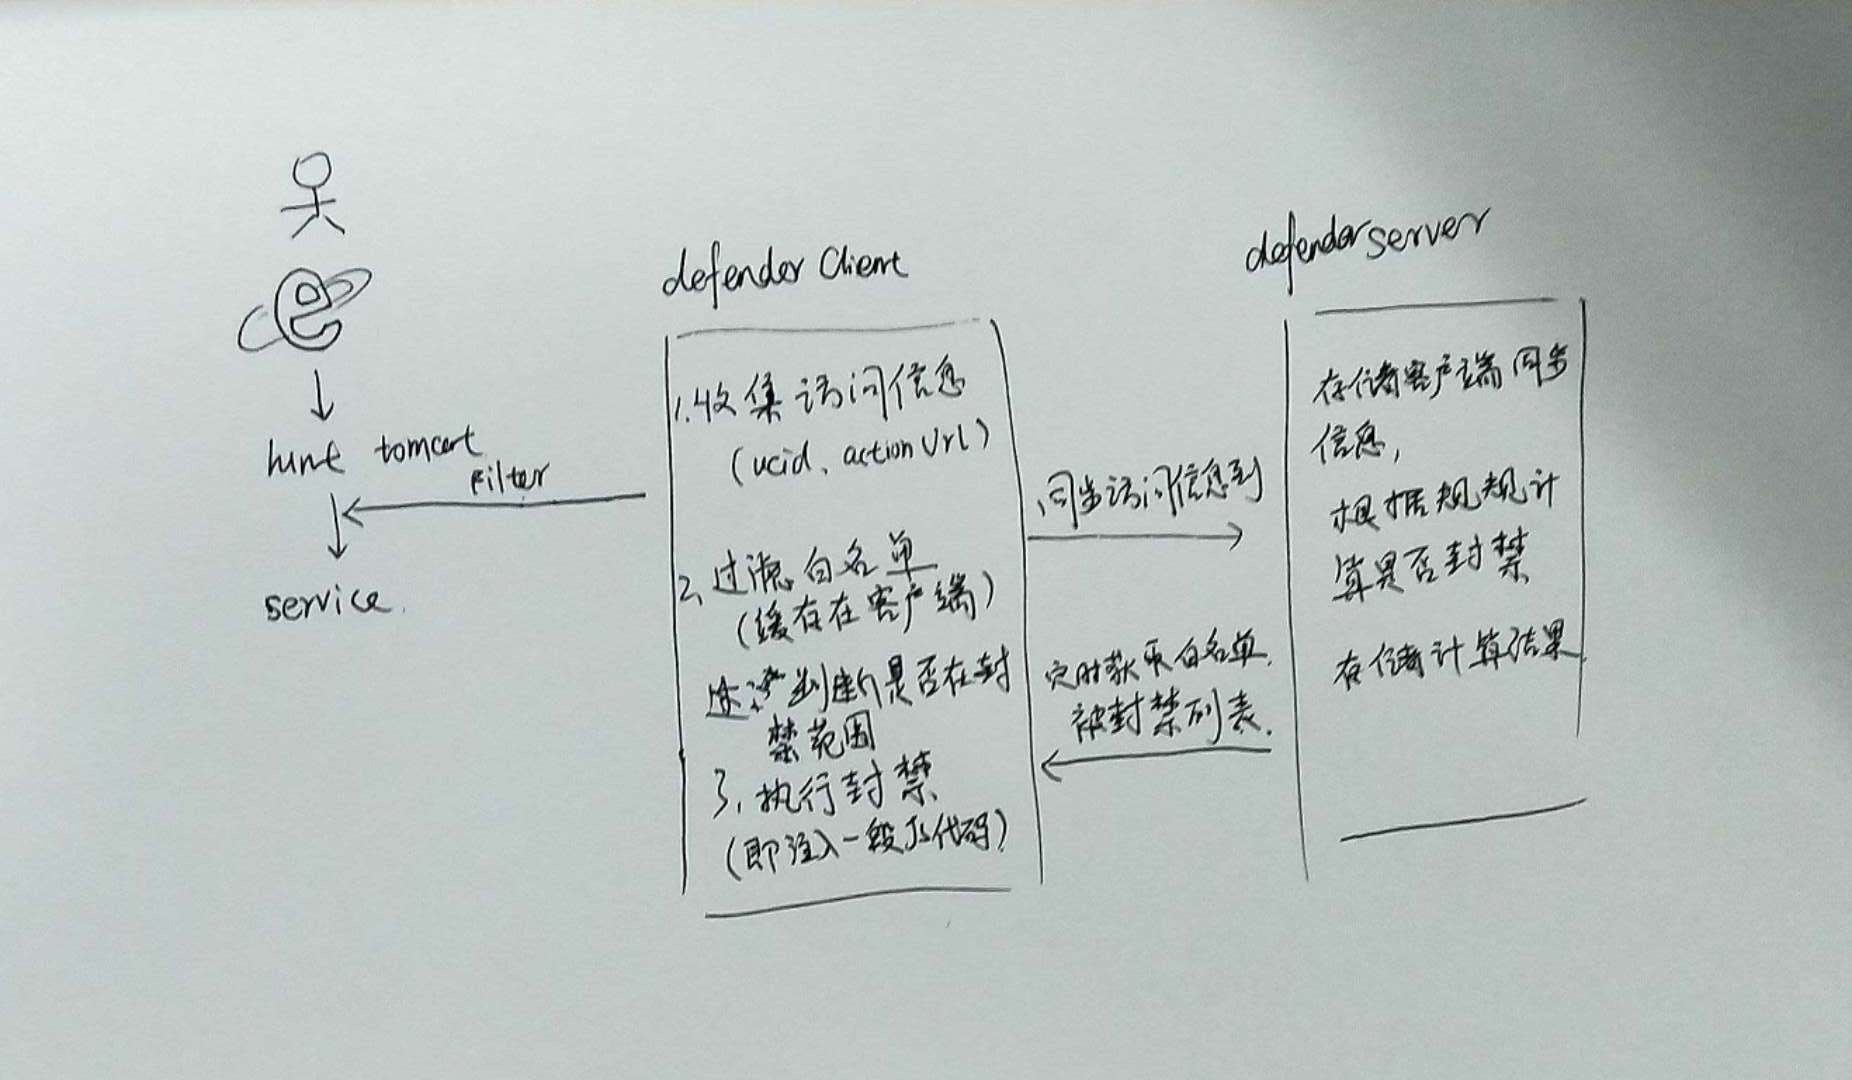 hunt tomcat
Filter
service
defender Client
1.收集访问信息
(ucid、actionUrl)
2、过滤白名单
(缓存在客户端)
判断是否在封
禁范围
3、执行封禁
(即注入一段Js代码)
同步访问信息到
定时获取白名单、
被封禁列表.
defender server
存储客户端同步
信息,
根据规规计
算是否封禁
存储计算结果